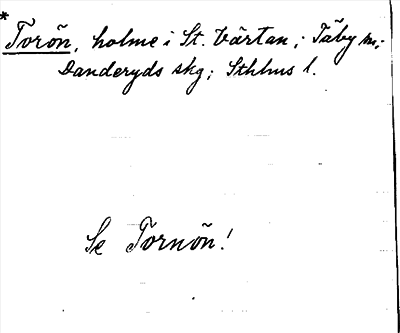 * Torön, holme i St. Värtan; Täby sn;
Danderyds skg; Sthlms l.
Se Tornön!